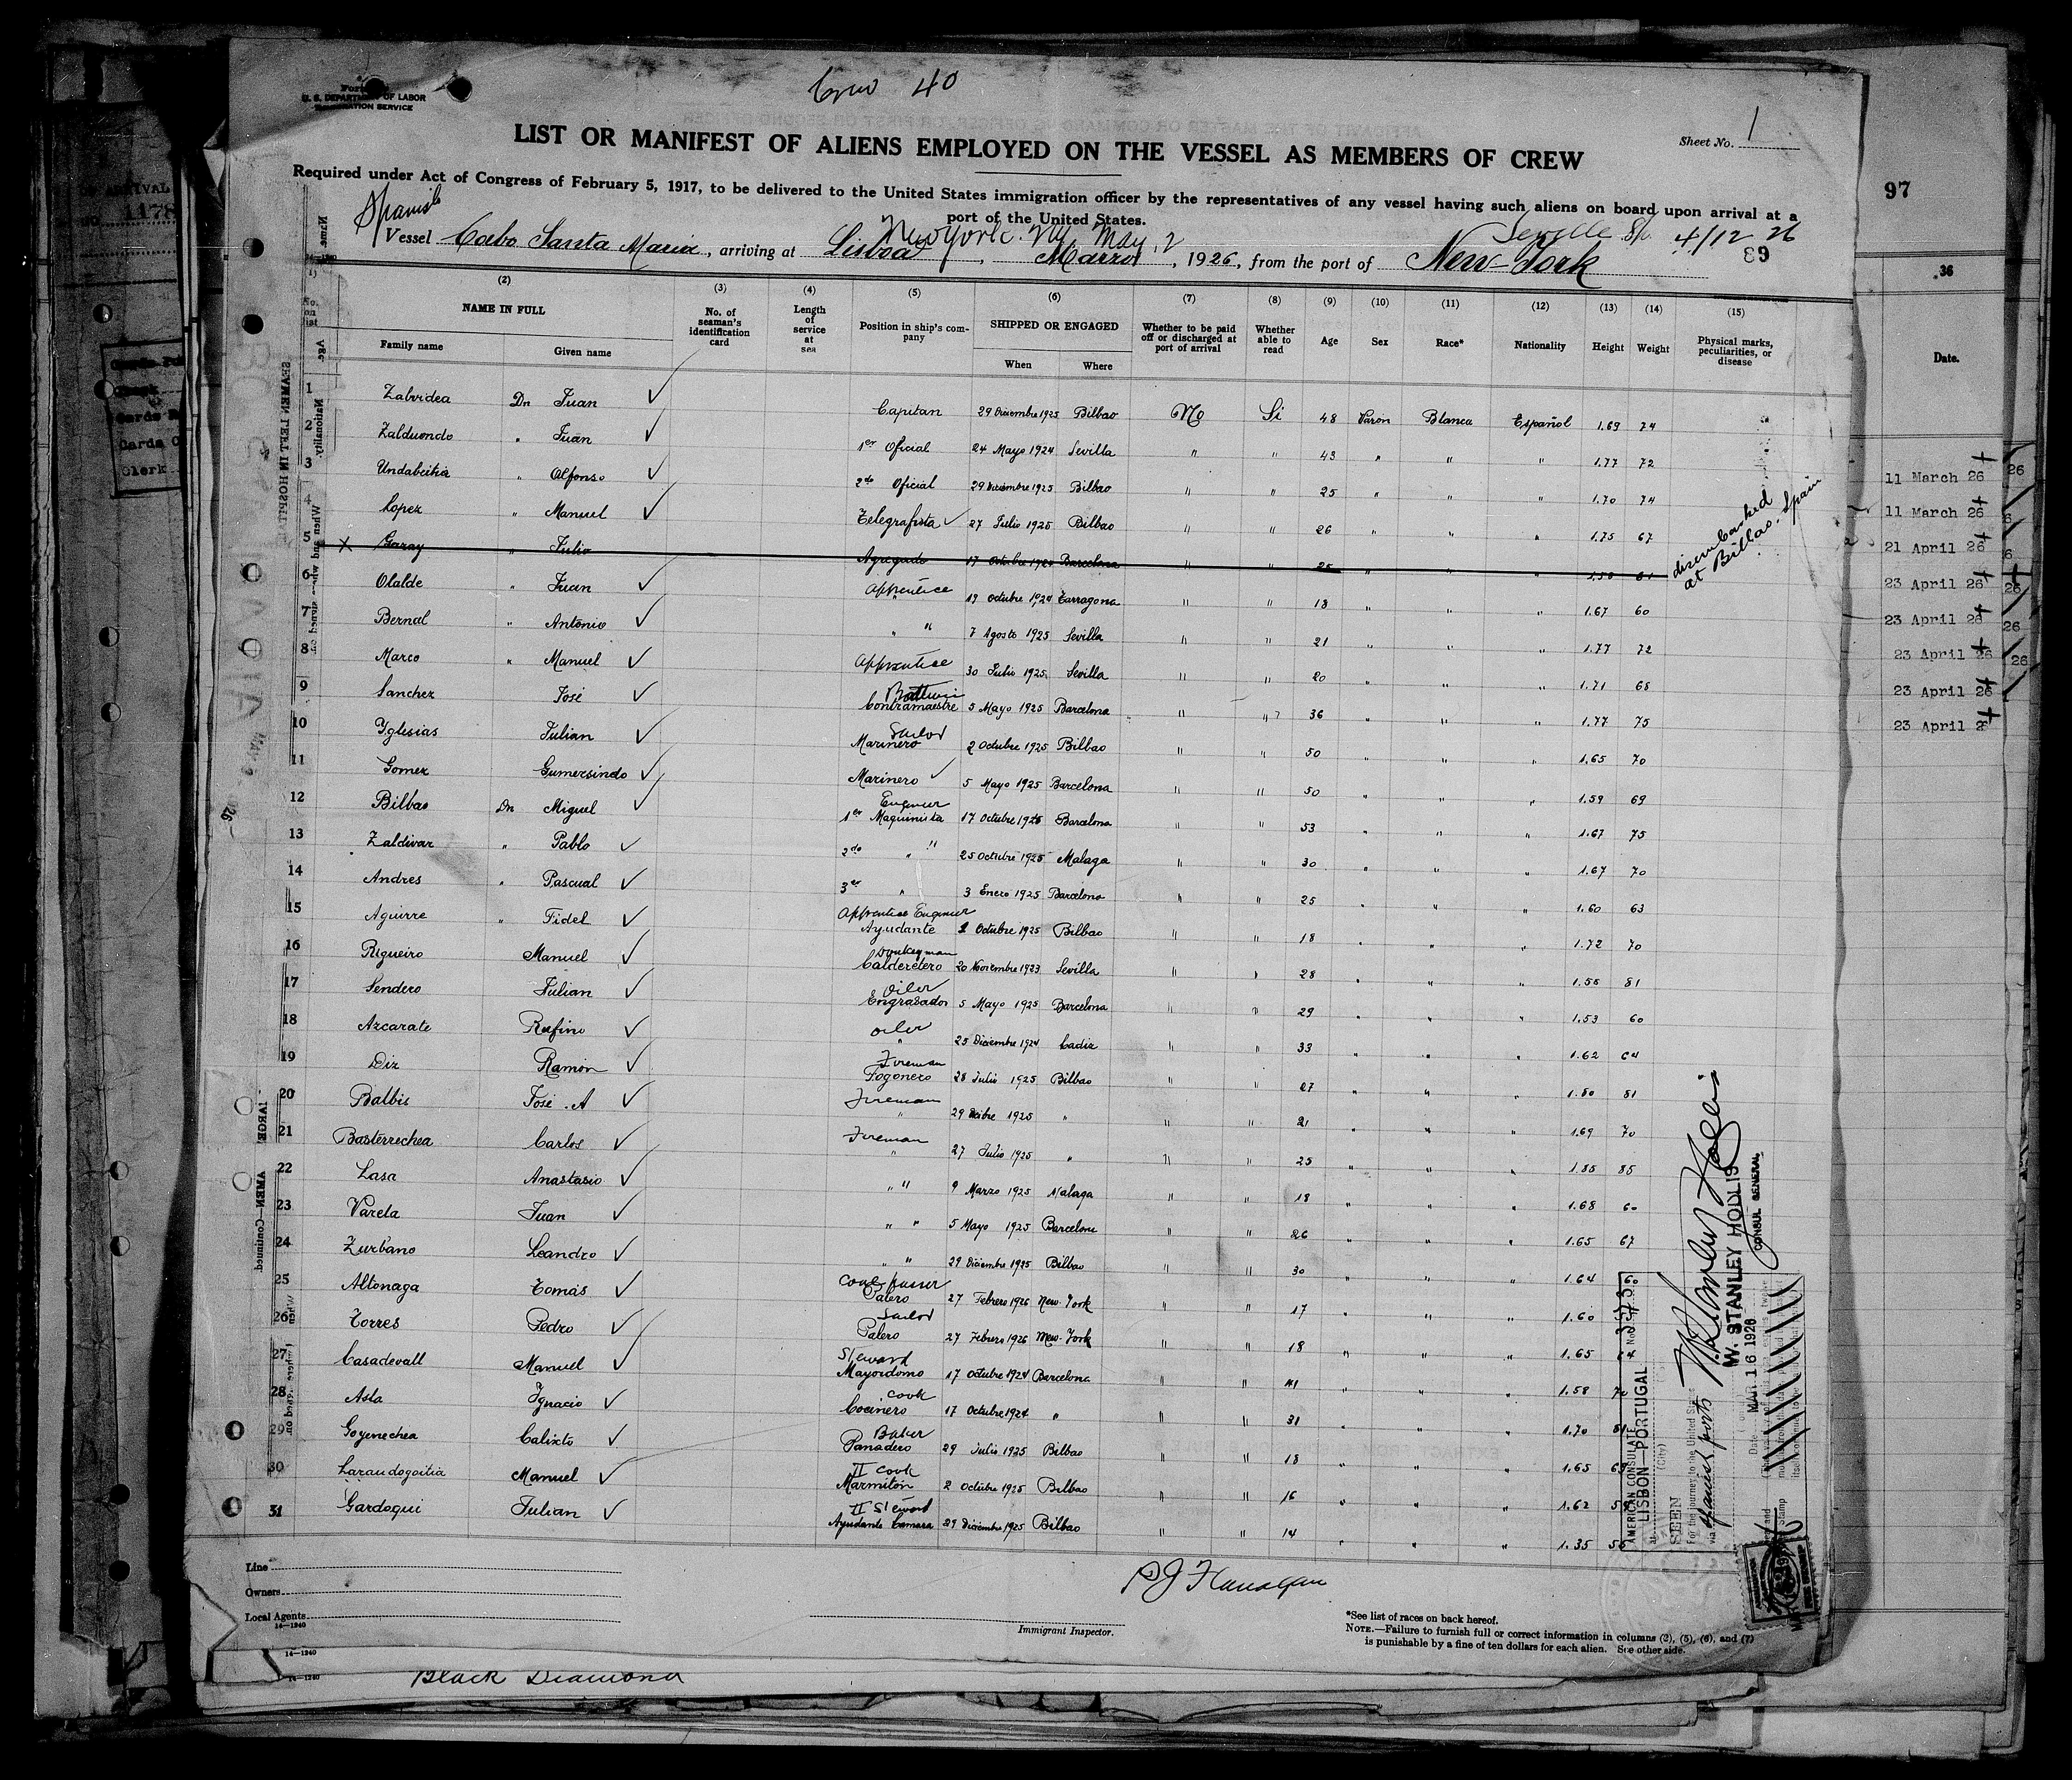 Crew 40
U. S. DEPARTMENT OF LABOR
IMMIGRATION SERVICE
Sheet No. 1
LIST OR MANIFEST OF ALIENS EMPLOYED ON THE VESSEL AS MEMBERS OF CREW
Required under Act of Congress of February 5, 1917, to be delivered to the United States immigration officer by the representatives of any vessel having such aliens on board upon arrival at a
port of the United States.
Spanish
New York. NY May, 2
Seville Sp. 4/12 26
Vessel Cabo Santa Maria, arriving at Lisboa, Marzo, 1926, from the port of New-York
89
(2) (3) (4) (5) (6) (7) (8) (9) (10) (11) (12) (13) (14) (15)
No. on list
NAME IN FULL
Family name Given name
No. of seaman's identification card
Length of service at sea
Position in ship's company
SHIPPED OR ENGAGED
When Where
Whether to be paid off or discharged at port of arrival
Whether able to read
Age
Sex
Race*
Nationality
Height
Weight
Physical marks, peculiarities, or disease
1 Zalvidea Dn Juan Capitan 29 Diciembre 1925 Bilbao No Si 48 Varon Blanca Español 1.69 74
2 Zalduondo " Juan 1er Oficial 24 Mayo 1924 Sevilla " " 43 " " " 1.77 72
3 Undabeitia " Alfonso 2do Oficial 29 Diciembre 1925 Bilbao " " 25 " " " 1.70 74
4 Lopez " Manuel Telegrafista 27 Julio 1925 Bilbao " " 26 " " " 1.75 67
5 X Garay " Julio Agregado 17 Octubre Barcelona " " 25 " " "
disembarked at Bilbao. Spain
6 Olalde " Juan Apprentice 19 Octubre 1924 Tarragona " " 18 " " " 1.67 60
7 Bernal " Antonio " " 7 Agosto 1925 Sevilla " " 21 " " " 1.77 72
8 Marco " Manuel Apprentice 30 Julio 1925 Sevilla " " 20 " " " 1.71 68
9 Sanchez José Contramaestre 5 Mayo 1925 Barcelona " " 36 " " " 1.77 75
10 Yglesias Julian Sailor Marinero 2 Octubre 1925 Bilbao " " 50 " " " 1.65 70
11 Gomez Gumersindo Marinero 5 Mayo 1925 Barcelona " " 50 " " " 1.59 69
12 Bilbao Dn Miguel Engineer 1er Maquinista 17 Octubre 1925 Barcelona " " 53 " " " 1.67 75
13 Zaldivar " Pablo 2do " " 25 Octubre 1925 Malaga " " 30 " " " 1.67 70
14 Andres " Pascual 3er " 3 Enero 1925 Barcelona " " 25 " " " 1.60 63
15 Aguirre " Fidel Apprentice Engineer Ayudante 2 Octubre 1925 Bilbao " " 18 " " " 1.72 70
16 Rigueiro Manuel Donkeyman Calderetero 20 Noviembre 1923 Sevilla " " 28 " " " 1.55 81
17 Sendero Julian Oiler Engrasador 5 Mayo 1925 Barcelona " " 29 " " " 1.53 60
18 Azcarate Rufino Oiler " 25 Diciembre 1924 Cadiz " " 33 " " " 1.62 64
19 Diz Ramón Fireman Fogonero 28 Julio 1925 Bilbao " " 27 " " " 1.80 81
20 Balbis José . A Fireman " 29 1925 " " " 21 " " " 1.69 70
21 Basterrechea Carlos Fireman " 27 Julio 1925 " " " 25 " " " 85
22 Lasa Anastasio " " 9 Marzo 1925 Malaga " " 18 " " " 1.68 60
23 Varela Juan " " 5 Mayo 1925 Barcelona " " 26 " " " 1.65 67
24 Zurbano Leandro " " 29 Diciembre 1925 Bilbao " " 30 " " " 1.64 60
25 Altonaga Tomás Coal passer Palero 27 Febrero 1926 New-York " " 17 " " " 1.60
26 Torres Pedro Sailor Palero 27 Febrero 1926 New-York " " 18 " " " 1.65 64
27 Casadevall Manuel Steward Mayordomo 17 Octubre 1924 Barcelona " " 41 " " " 1.58 70
28 Asla Ygnacio Cook Cocinero 17 Octubre 1924 " " " 31 " " " 1.70
29 Goyenechea Calixto Baker Panadero 29 Julio 1925 Bilbao " " 18 " " " 1.65
30 Laraudogoitia Manuel II Cook Marmitón 2 Octubre 1925 Bilbao " " 16 " " " 1.62
31 Gardoqui Julian II Steward Ayudante Camara 29 Diciembre 1925 Bilbao " " 14 " " " 1.35
W. STANLEY HOLLIS
CONSUL GENERAL
AMERICAN CONSULATE
LISBON—PORTUGAL
SEEN
For the journey to the United States
via Spanish ports
MAR 16 1926
Line
Owners
Local Agents
14—1240
Immigrant Inspector.
*See list of races on back hereof.
NOTE.—Failure to furnish full or correct information in columns (2), (5), (6), and (7)
is punishable by a fine of ten dollars for each alien. See other side.
14—1240
14—1240
Black Diamond
97
36
Date.
11 March 26
11 March 26
21 April 26
23 April 26
23 April 26
23 April 26
23 April 26
23 April 2